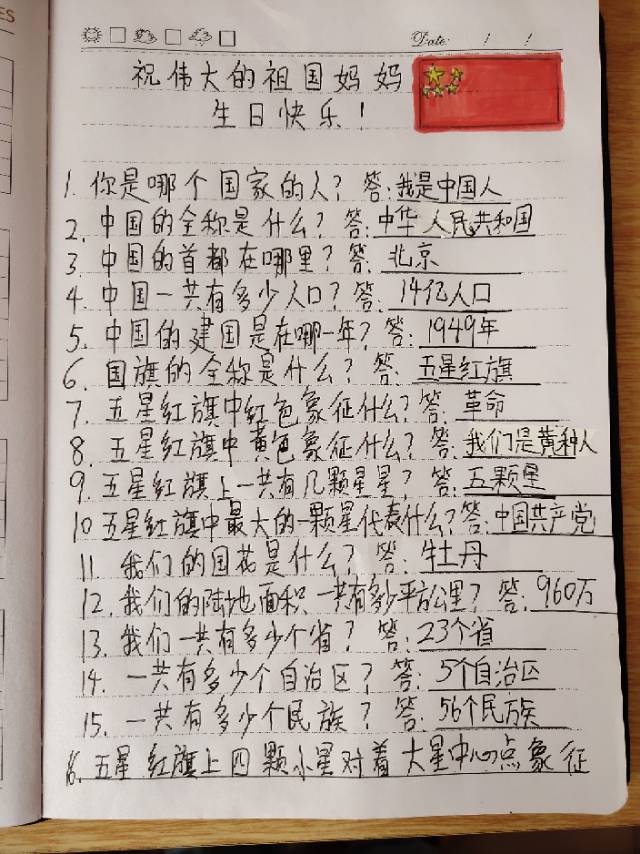 ES
Date: / /
祝伟大的祖国妈妈
生日快乐！
1. 你是哪个国家的人？答：我是中国人
2. 中国的全称是什么？答：中华人民共和国
3. 中国的首都在哪里？答：北京
4. 中国一共有多少人口？答：14亿人口
5. 中国的建国是在哪一年？答：1949年
6. 国旗的全称是什么？答：五星红旗
7. 五星红旗中红色象征什么？答：革命
8. 五星红旗中黄色象征什么？答：我们是黄种人
9. 五星红旗上一共有几颗星星？答：五颗星
10 五星红旗中最大的一颗星代表什么？答：中国共产党
11. 我们的国花是什么？答：牡丹
12. 我们的陆地面积一共有多少平方公里？答：960万
13. 我们一共有多少个省？答：23个省
14. 一共有多少个自治区？答：5个自治区
15. 一共有多少个民族？答：56个民族
16. 五星红旗上四颗小星对着大星中心点象征